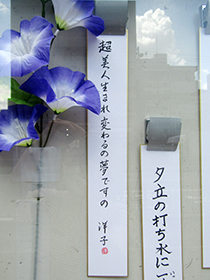 超美人生まれ変わるの夢ですの 洋子
夕立の打ち水に